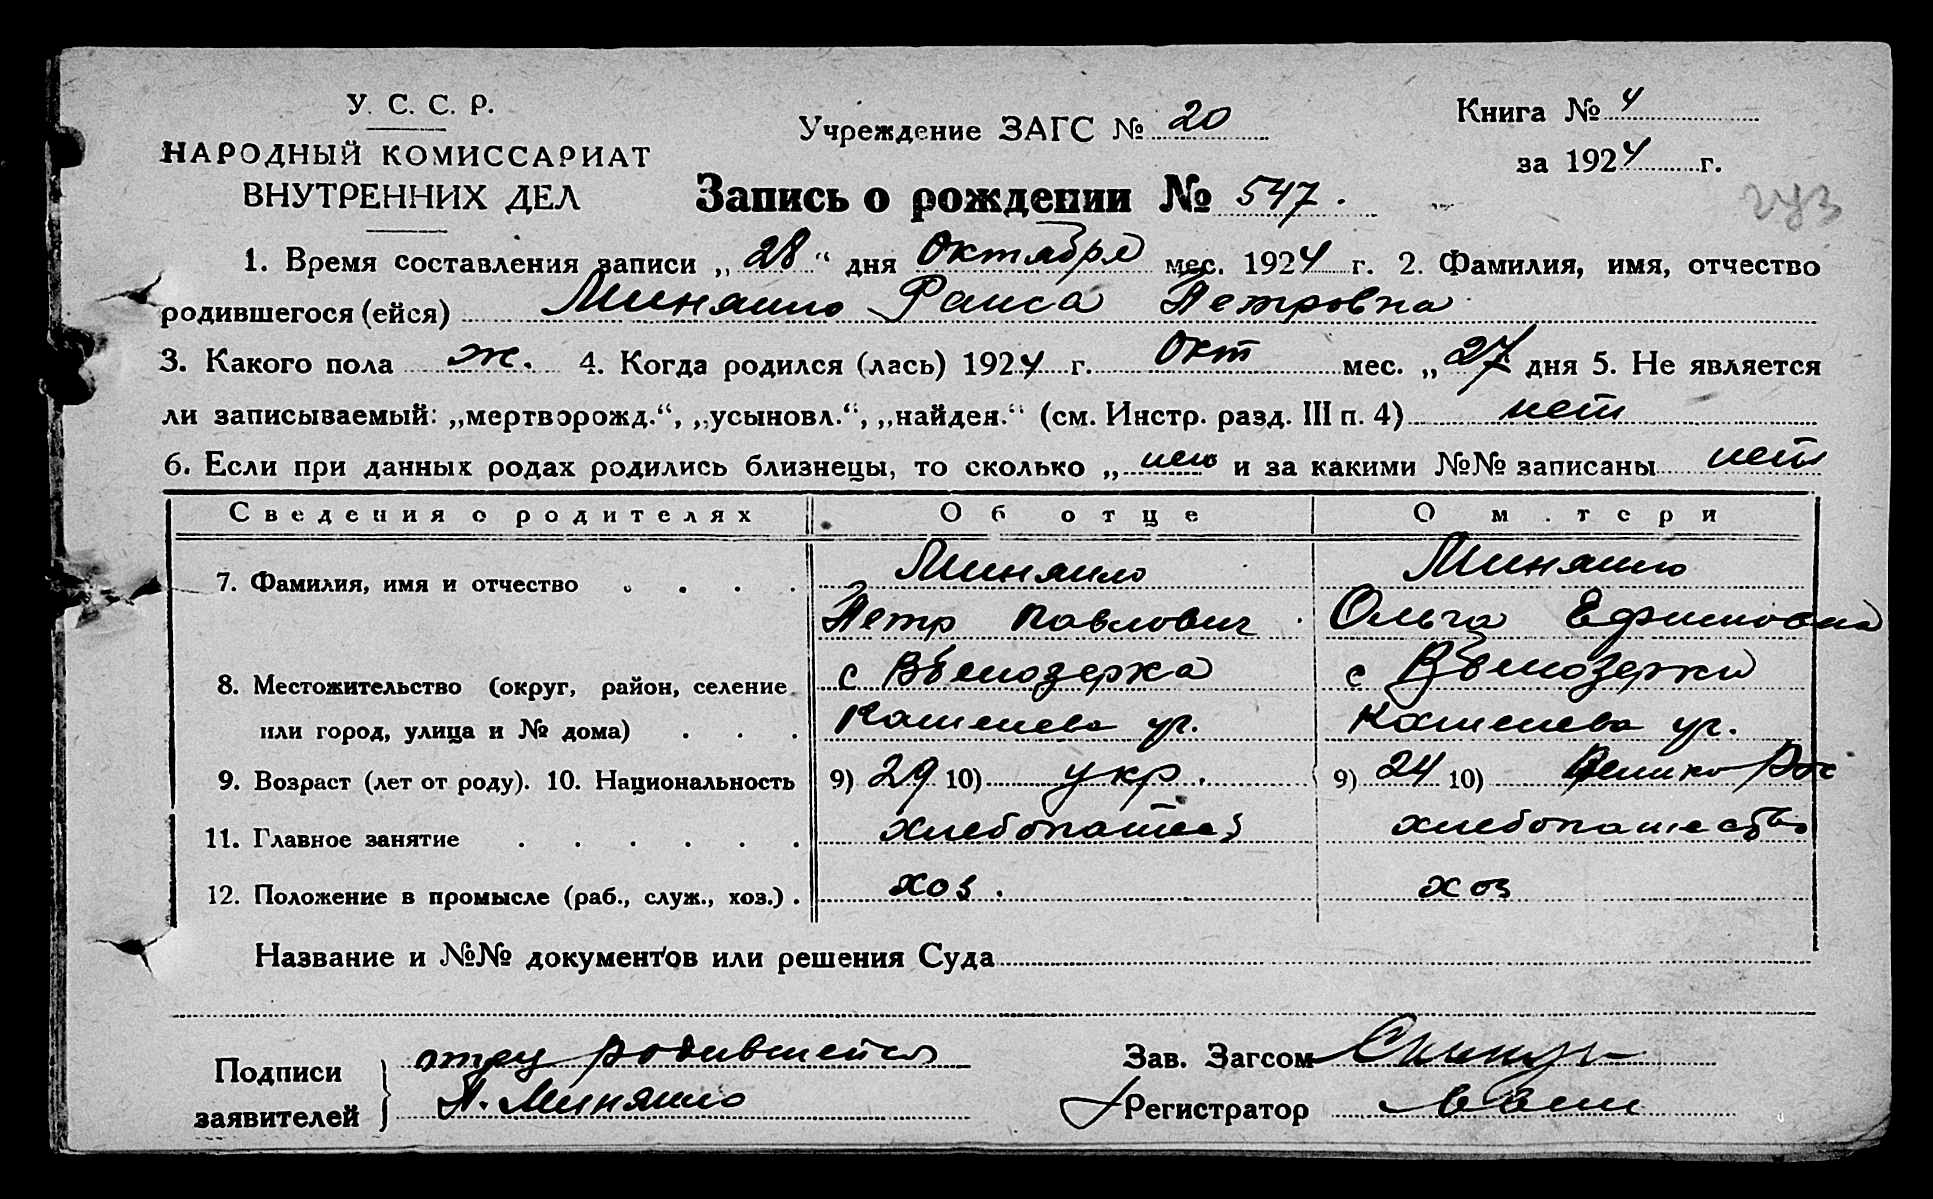 У. С. С. Р.
НАРОДНЫЙ КОМИССАРИАТ
ВНУТРЕННИХ ДЕЛ
Учреждение ЗАГС № 20
Книга № 4
за 1924 г.
Запись о рождении № 547.
1. Время составления записи „28“ дня Октября мес. 1924 г. 2. Фамилия, имя, отчество
родившегося (ейся) Миняило Раиса Петровна
3. Какого пола ж. 4. Когда родился (лась) 1924 г. окт мес. „27 дня 5. Не является
ли записываемый: „мертворожд.“, „усыновл.“, „найден.“ (см. Инстр. разд. III п. 4) нет
6. Если при данных родах родились близнецы, то сколько „нет и за какими №№ записаны нет
Сведения о родителях Об отце О м.тери
7. Фамилия, имя и отчество Миняило Миняило
Петр Павлович Ольга Ефимовна
8. Местожительство (округ, район, селение с Белозерка с Белозерки
или город, улица и № дома) ул. ул.
9. Возраст (лет от роду). 10. Национальность 9) 29 10) укр. 9) 24 10) Велико Рос
11. Главное занятие хлебопашес хлебопашество
12. Положение в промысле (раб., служ., хоз.) хоз. хоз
Название и №№ документов или решения Суда
Подписи заявителей
отец родившейся
П. Миняило
Зав. Загсом
Регистратор